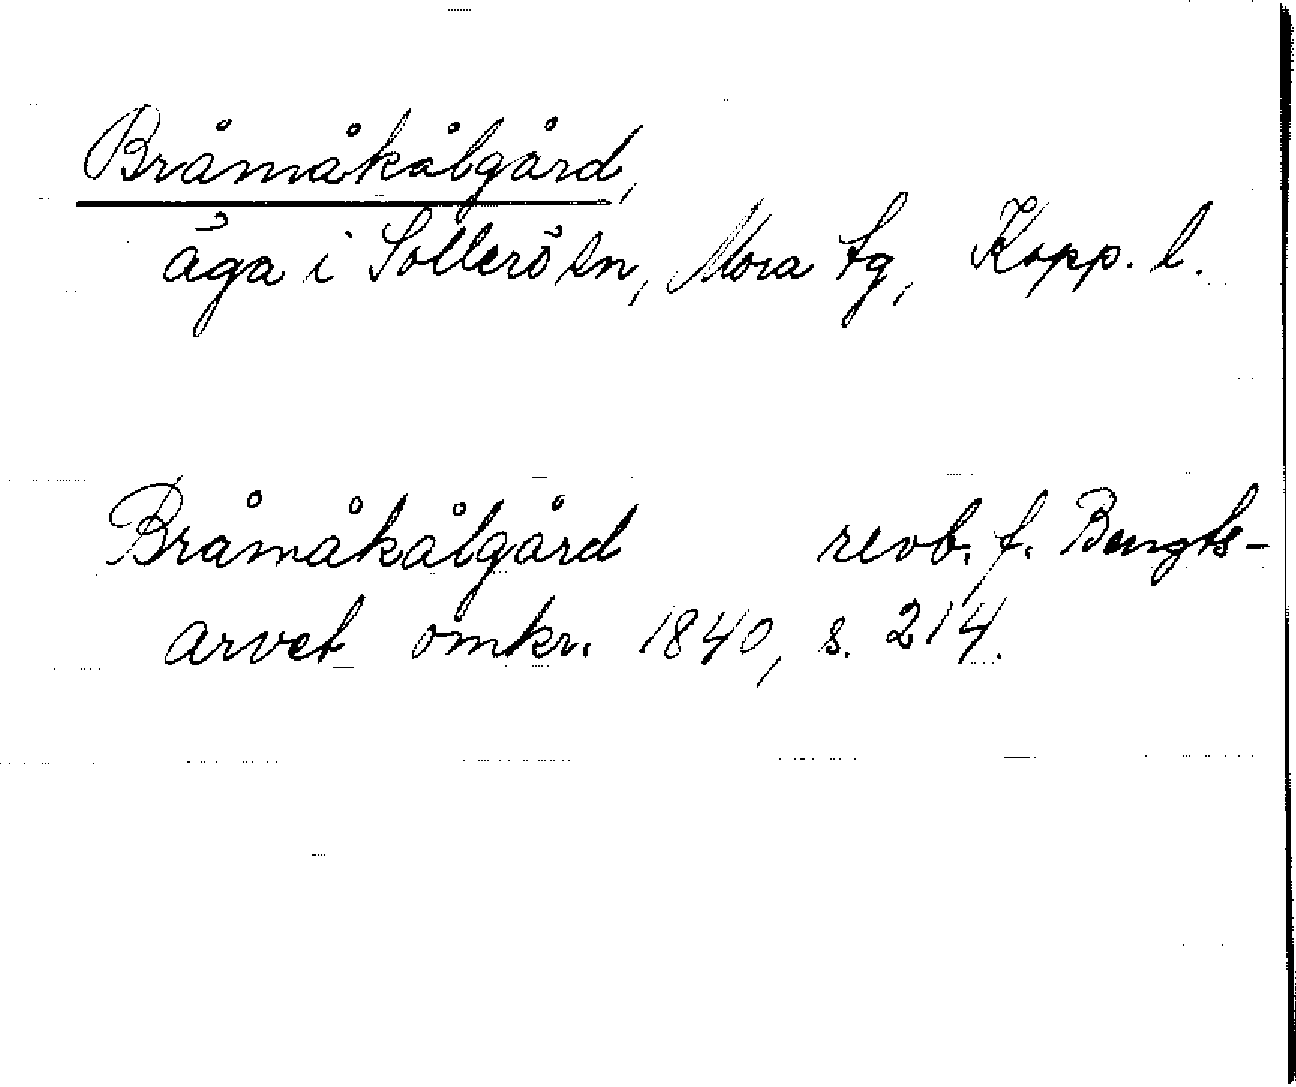 Bråmåkålgård,
äga i Sollerö sn, Mora tg, Kopp. l.
Bråmåkålgård revb. f. Bengts-
arvet omkr. 1840, s. 214.